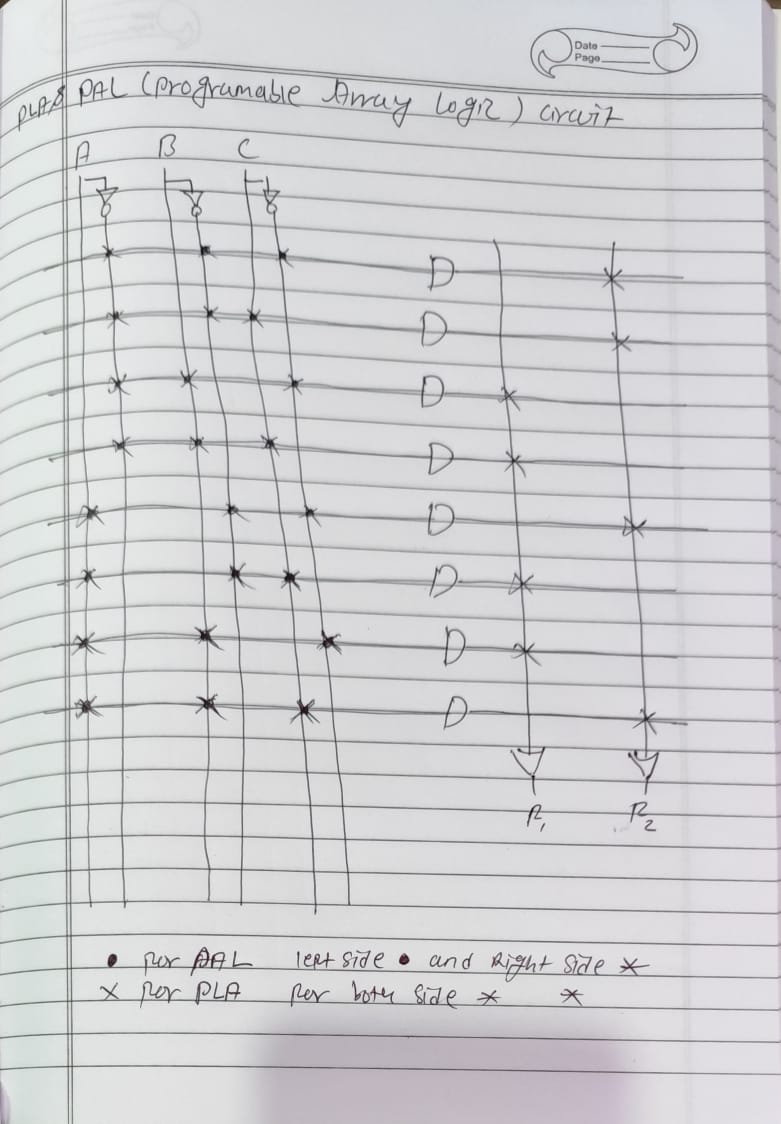 Date
Page
PLA & PAL (programable Array Logic) circuit
A B C
F1 F2
• for PAL left side • and Right side *
× for PLA for both side * *